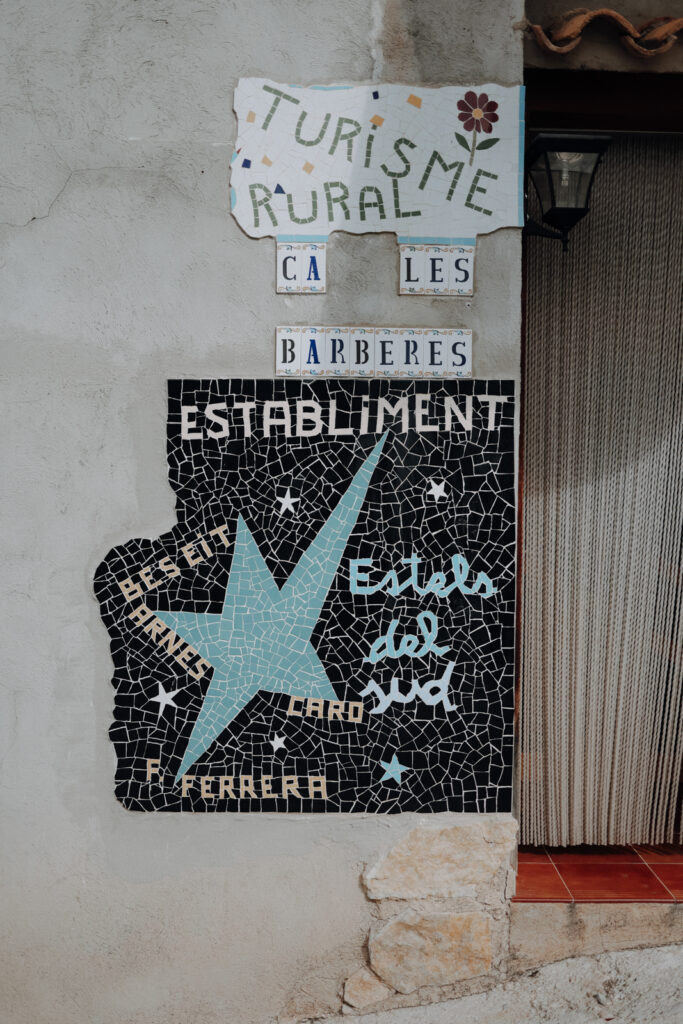 TURISME
RURAL
CA LES
BARBERES
ESTABLiMENT
BESEIT
ARNES
Estels
del
sud
CARO
F. FERRERA